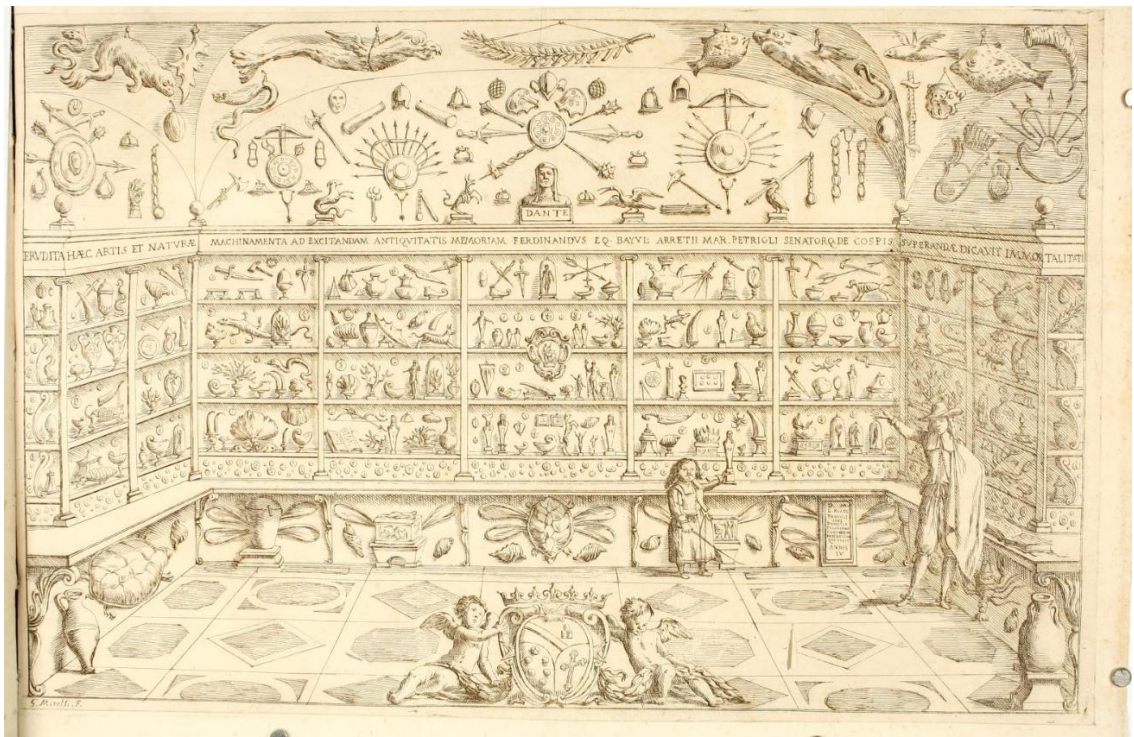 DANTE
ERUDITA HÆC ARTIS ET NATURÆ MACHINAMENTA AD EXCITANDAM ANTIQVITATIS MEMORIAM FERDINANDVS EQ. BAYVI: ARRETII MAR. PETRIOLI SENATORQ. DE COSPIS SUPERANDÆ DICAVIT IMMORTALITATI
D M
ANNOS
LV
G. Mitelli. F.